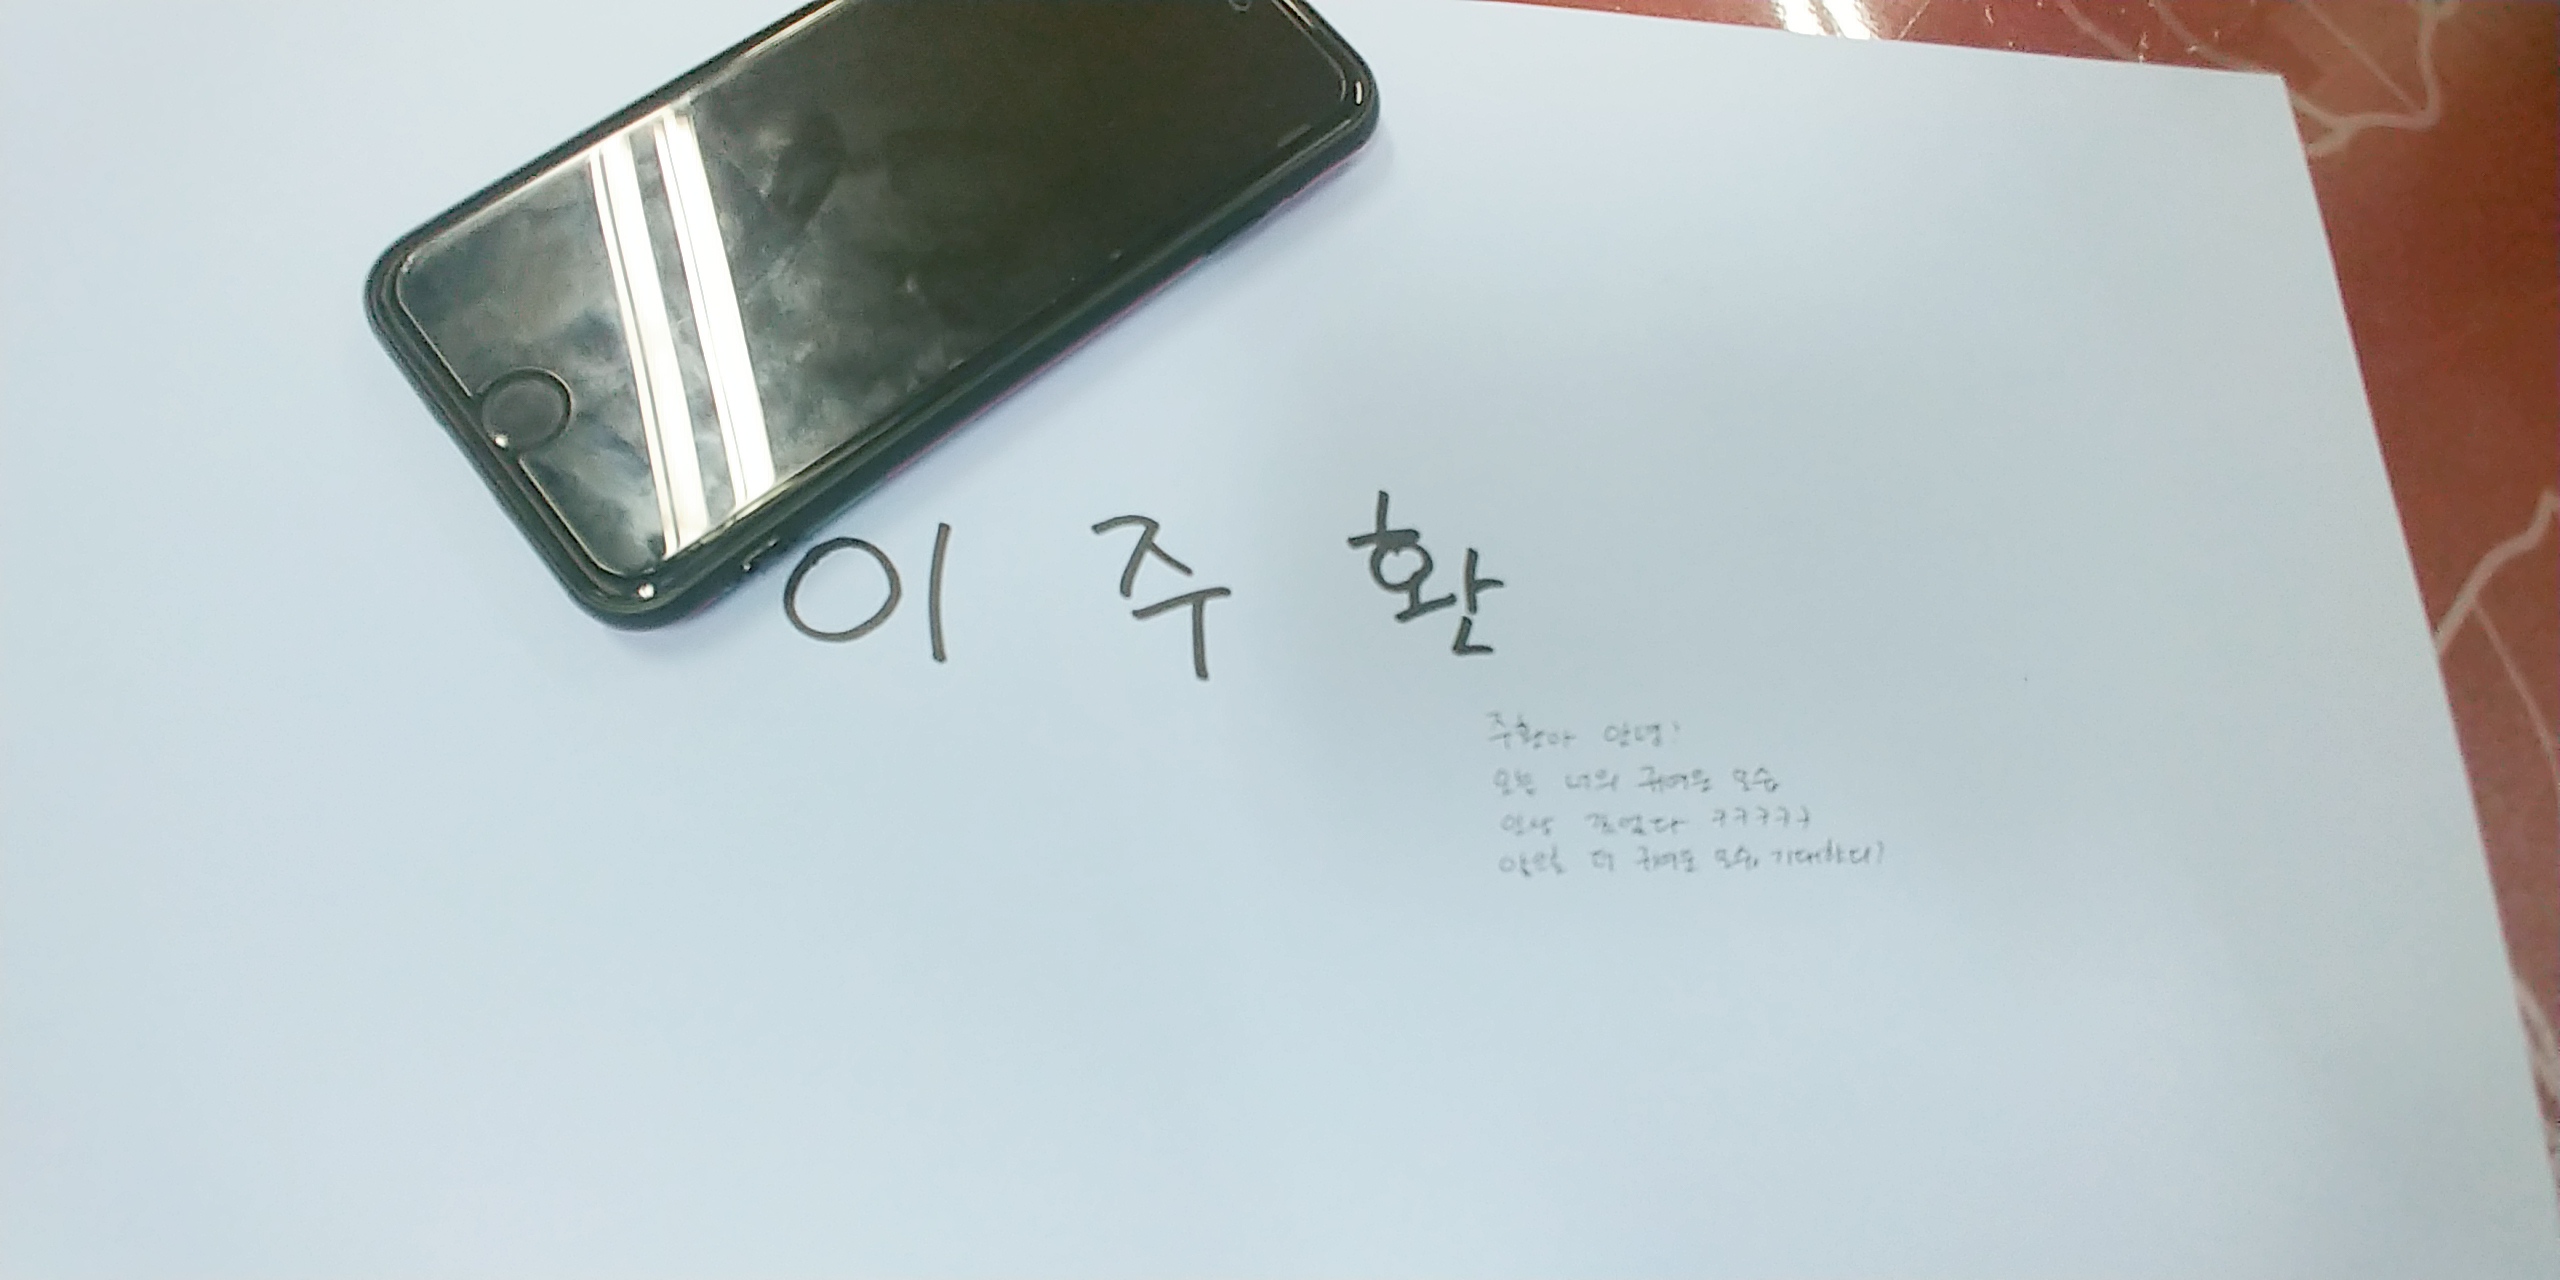 이 주 환
주환아 안녕?
오늘 너의 귀여운 모습
인상 깊었다 ㅋㅋㅋㅋㅋ
앞으로 더 귀여운 모습 기대할다?